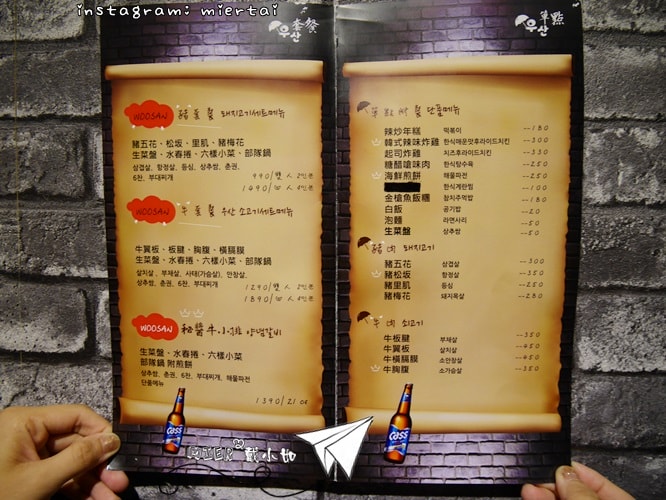 instagram: miertai
우산 套餐
WOOSAN 豬 套餐 돼지고기세트메뉴
豬五花、松坂、里肌、豬梅花
生菜盤、水春捲、六樣小菜、部隊鍋
삼겹살, 항정살, 등심, 상추쌈, 춘권,
6찬, 부대찌개
990/雙人 2인분
1490/四人 4인분
WOOSAN 牛 套餐 우산 소고기세트메뉴
牛翼板、板腱、胸腹、橫膈膜
生菜盤、水春捲、六樣小菜、部隊鍋
살치살, 부채살, 사태(가슴살), 안창살,
상추쌈, 춘권, 6찬, 부대찌개
1290/雙人 2인분
1890/四人 4인분
WOOSAN 秘醬牛小排 양념갈비
生菜盤、水春捲、六樣小菜
部隊鍋 附煎餅
상추쌈, 춘권, 6찬, 부대찌개, 해물파전
단품메뉴
1390/21oz
Cass
MIER 戴小如
우산 單點
單點 餐 단품메뉴
辣炒年糕 떡볶이 --180
韓式辣味炸雞 한식매운맛후라이드치킨 --300
起司炸雞 치즈후라이드치킨 --330
糖醋嗆味肉 한식탕수육 --250
海鮮煎餅 해물파전 --250
한식계란찜 --100
金槍魚飯糰 참치주먹밥 --180
白飯 공기밥 --20
泡麵 라면사리 --50
生菜盤 상추쌈 --50
豬肉 돼지고기
豬五花 삼겹살 --300
豬松坂 항정살 --350
豬里肌 등심 --250
豬梅花 돼지목살 --280
牛肉 쇠고기
牛板腱 부채살 --350
牛翼板 살치살 --450
牛橫膈膜 소안창살 --450
牛胸腹 소가슴살 --350
Cass